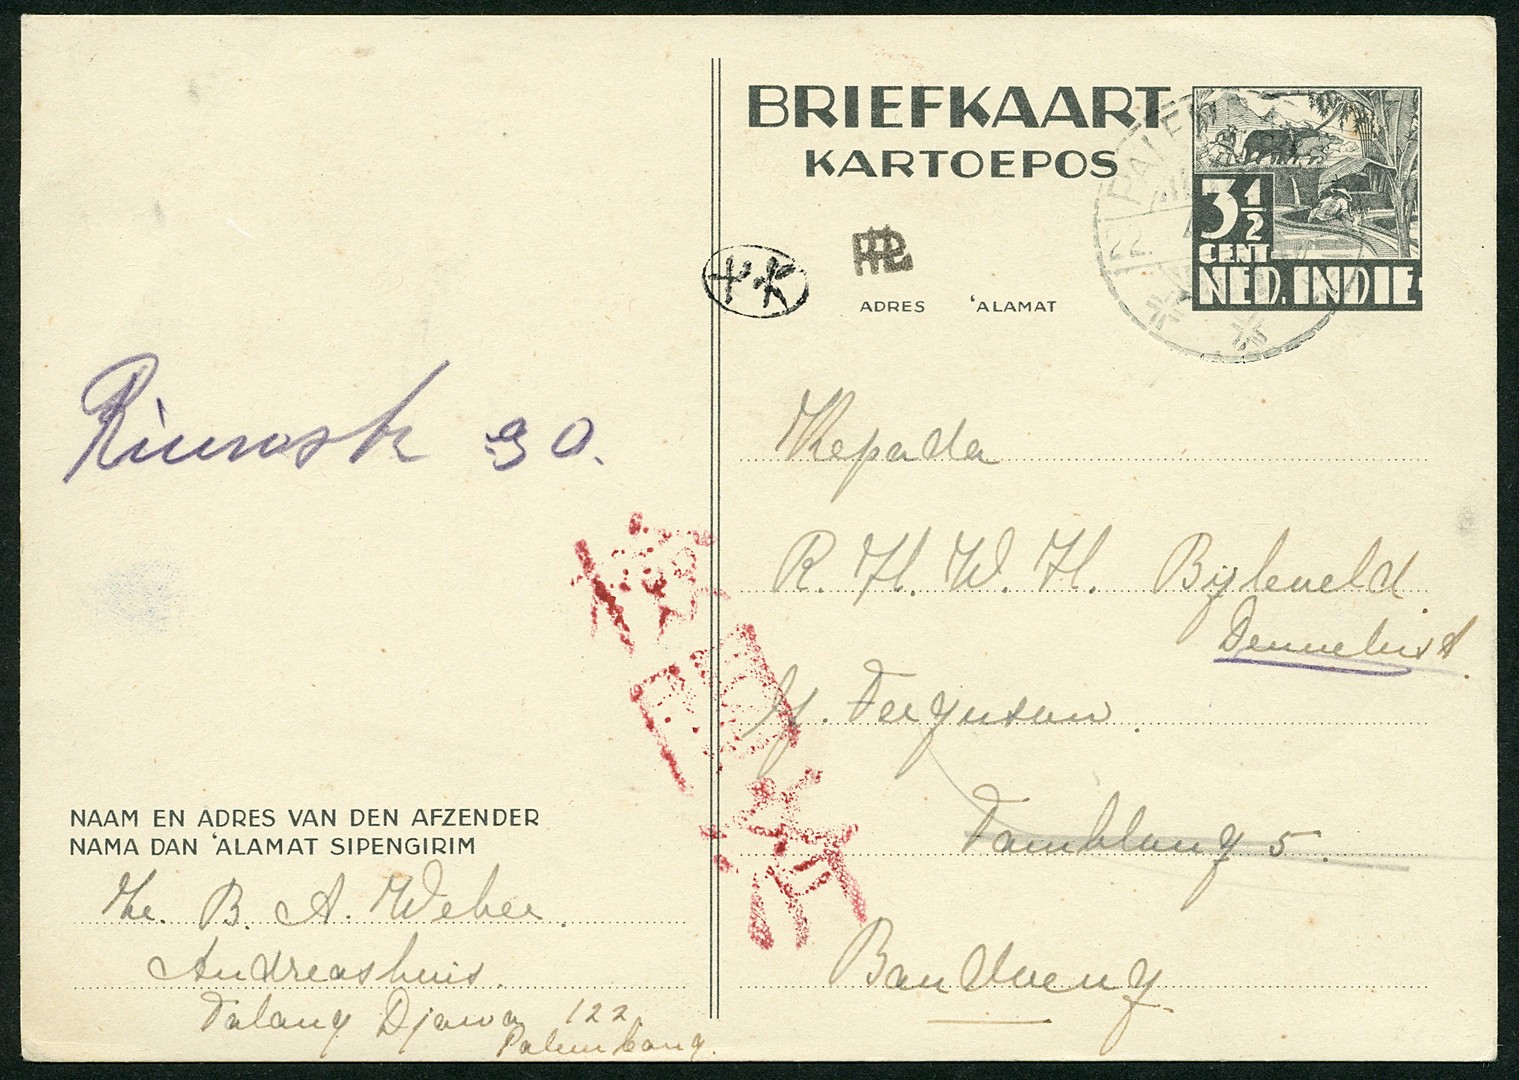 BRIEFKAART
KARTOEPOS
3½
CENT
NED. INDIE
PALEM
ADRES 'ALAMAT
Kepada
R. H. W. H. Bijleveld
p/. Ferguson
Tamblong 5.
Bandoeng
30.
NAAM EN ADRES VAN DEN AFZENDER
NAMA DAN 'ALAMAT SIPENGIRIM
B. A. Weber.
Andreashuis.
Talang Djawa 122
Palembang.